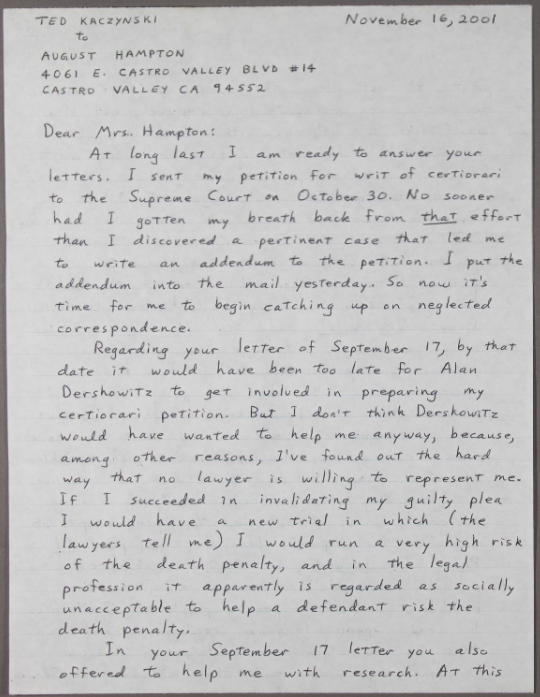 TED KACZYNSKI
November 16, 2001
to
AUGUST HAMPTON
4061 E. CASTRO VALLEY BLVD #14
CASTRO VALLEY CA 94552
Dear Mrs. Hampton:
At long last I am ready to answer your
letters. I sent my petition for writ of certiorari
to the Supreme Court on October 30. No sooner
had I gotten my breath back from that effort
than I discovered a pertinent case that led me
to write an addendum to the petition. I put the
addendum into the mail yesterday. So now it's
time for me to begin catching up on neglected
correspondence.
Regarding your letter of September 17, by that
date it would have been too late for Alan
Dershowitz to get involved in preparing my
certiorari petition. But I don't think Dershowitz
would have wanted to help me anyway, because,
among other reasons, I've found out the hard
way that no lawyer is willing to represent me.
If I succeeded in invalidating my guilty plea
I would have a new trial in which (the
lawyers tell me) I would run a very high risk
of the death penalty, and in the legal
profession it apparently is regarded as socially
unacceptable to help a defendant risk the
death penalty.
In your September 17 letter you also
offered to help me with research. At this